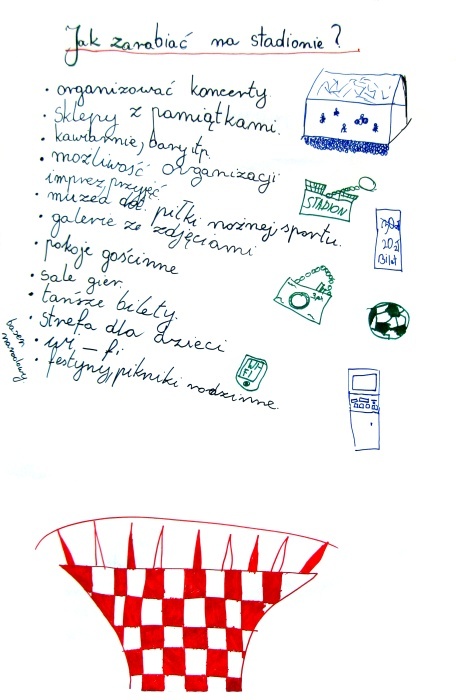 Jak zarabiać na stadionie?
• organizować koncerty
• sklepy z pamiątkami.
• kawiarnie, bary itp.
• możliwość organizacji
imprez, przyjęć
• muzea dot. piłki nożnej, sportu.
• galerie ze zdjęciami
• pokoje gościnne
• sale gier.
• tańsze bilety.
• strefa dla dzieci
• wi-fi
• festyny, pikniki rodzinne.
basen
narodowy
STADION
20zł
Bilet
WI
FI